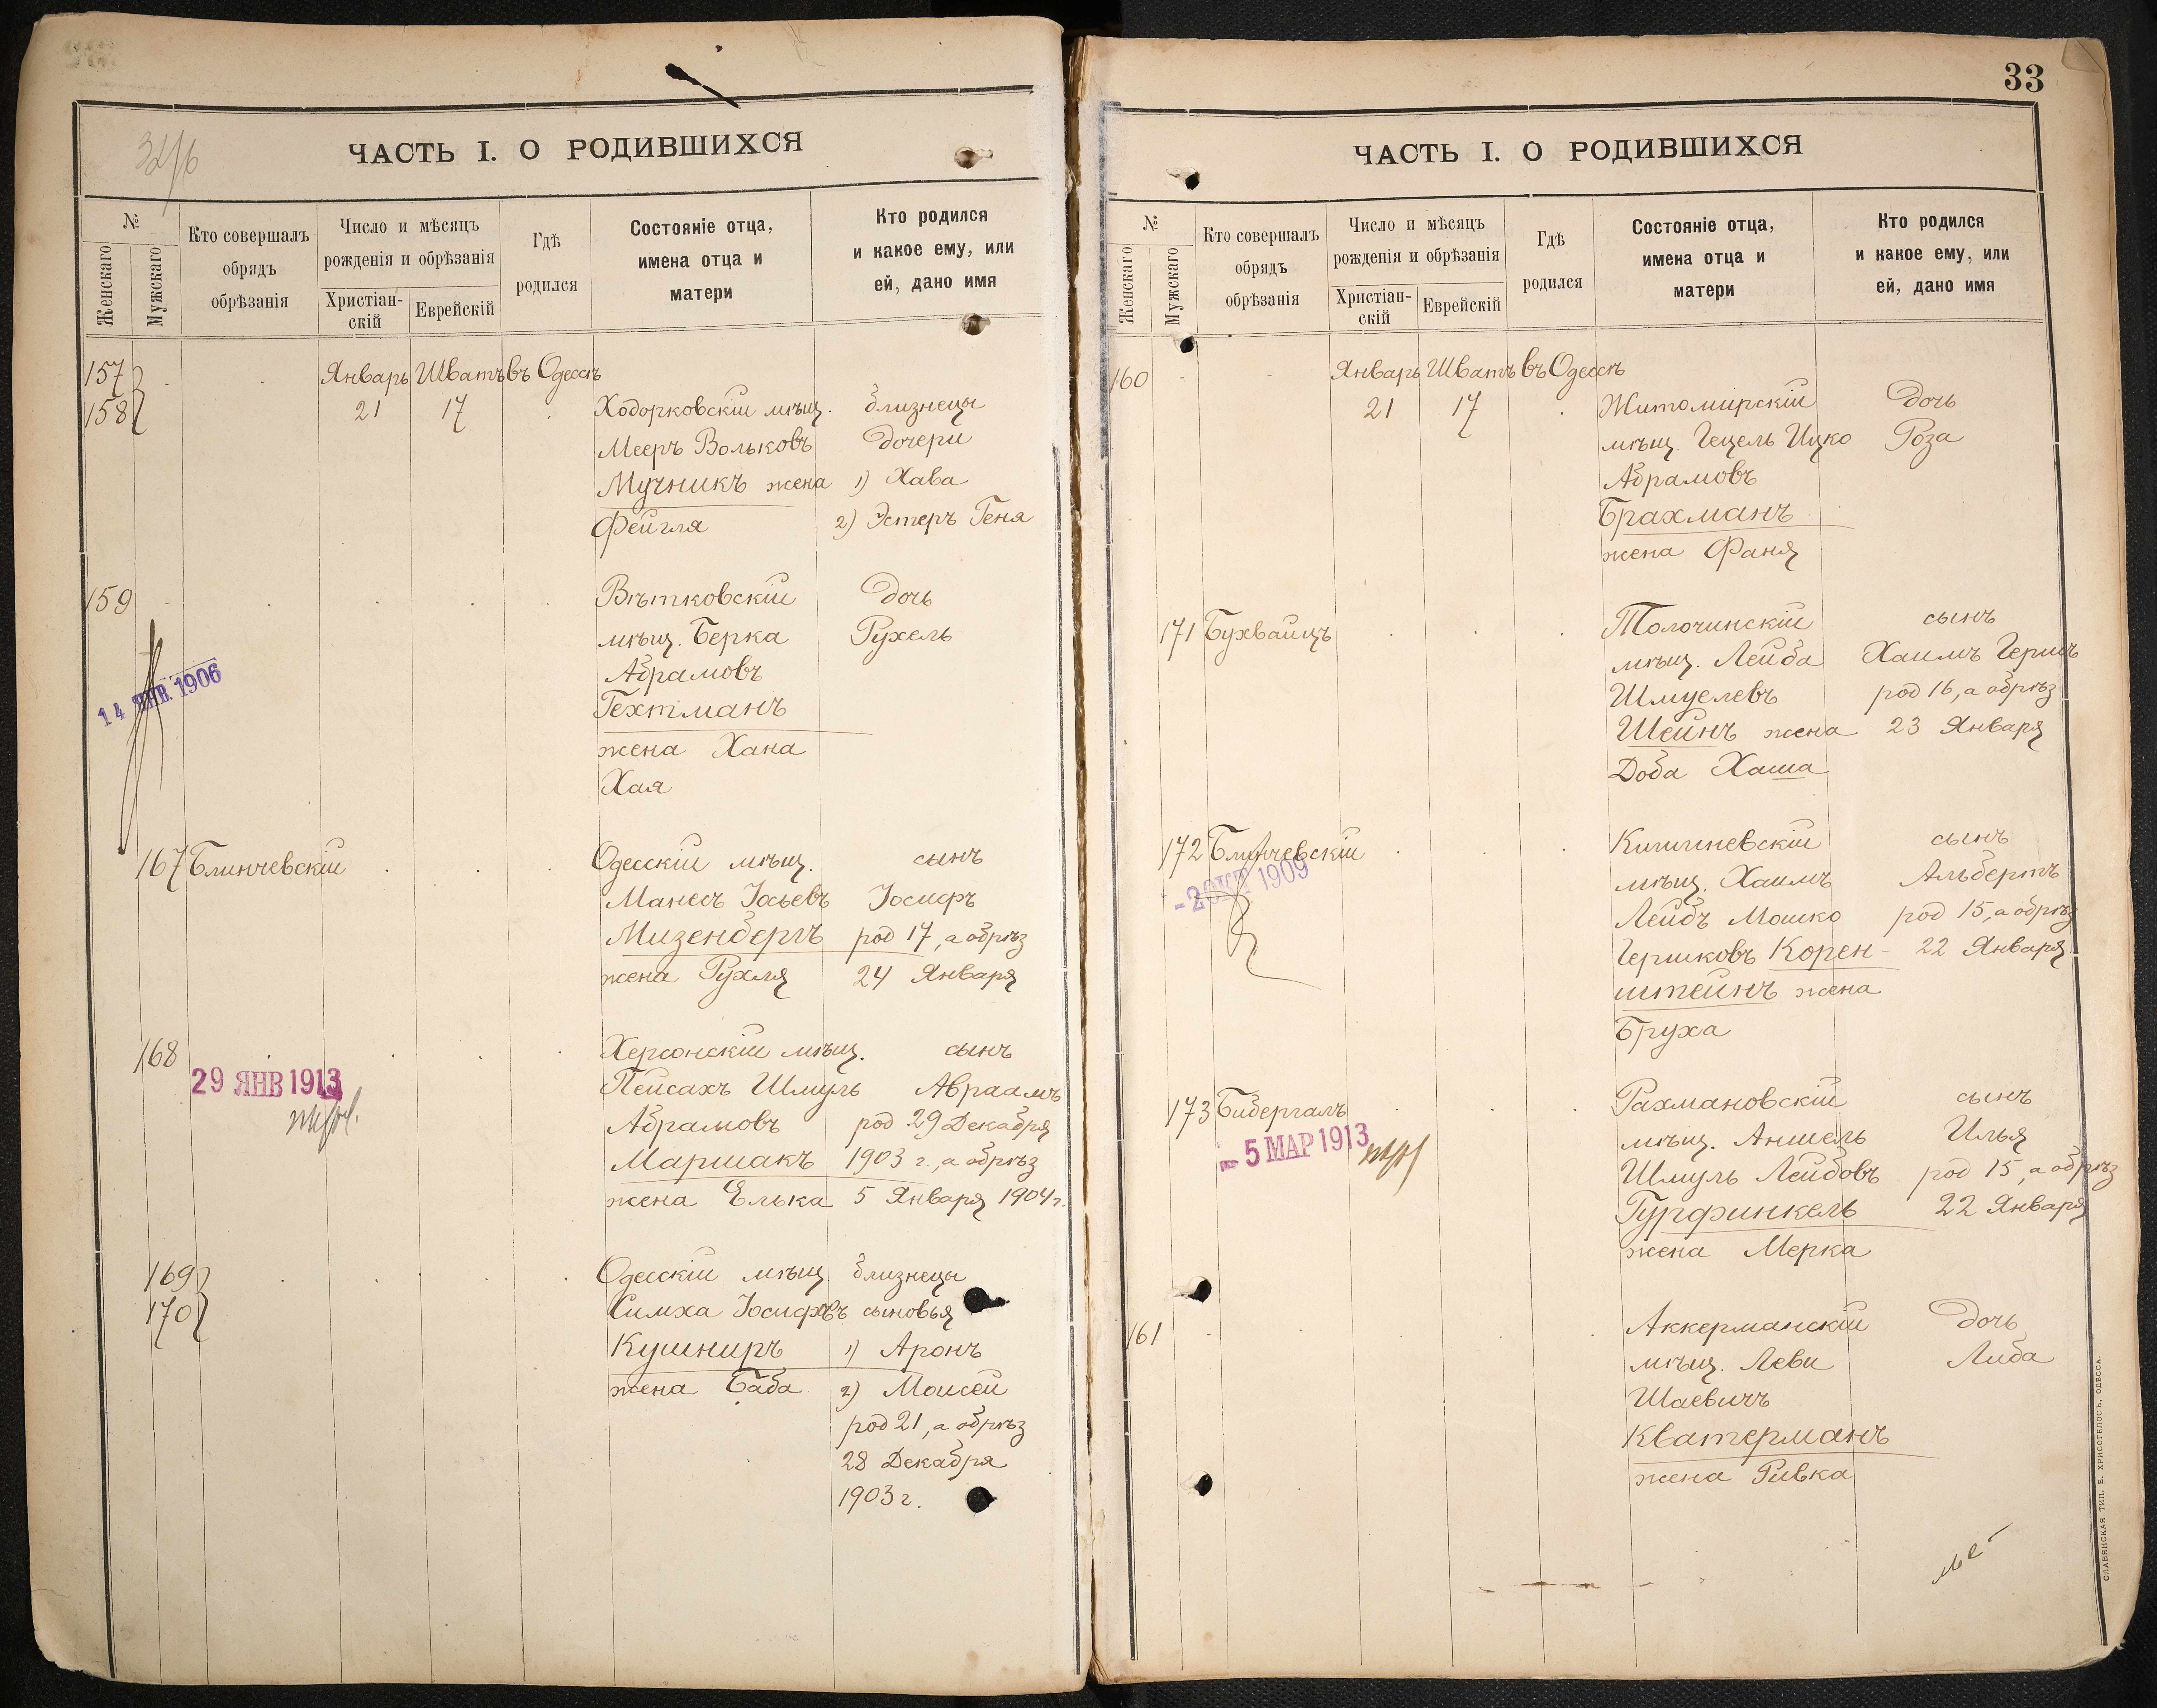 ЧАСТЬ I. О РОДИВШИХСЯ
№
Женскаго
Мужскаго
Кто совершалъ
обрядъ
обрѣзанія
Число и мѣсяцъ
рожденія и обрѣзанія
Христіан-
скій
Еврейскій
Гдѣ
родился
Состояніе отца,
имена отца и
матери
Кто родился
и какое ему, или
ей, дано имя
157 Январь Шватъ въ Одессѣ
158 21 17 Ходорковскій мѣщ. близнецы
Мееръ Вольковъ дочери
Мучникъ жена 1) Хава
Фейгля 2) Эстеръ Геня
159 Вѣтковскій дочь
мѣщ. Берка Рухель
Абрамовъ
14 ЯНВ. 1906
Гехтманъ
жена Хана
Хая
167 Блинчевскій Одесскій мѣщ. сынъ
Манесъ Іосьевъ Іосифъ
Мизенбергъ род 17, а обрѣз
жена Рухля 24 Января
168 Херсонскій мѣщ. сынъ
29 ЯНВ 1913
Пейсахъ Шмуль Авраамъ
Абрамовъ род 29 Декабря
Маршакъ 1903 г., а обрѣз
жена Елька 5 Января 1904 г.
169 Одесскій мѣщ. близнецы
170 Симха Іосифовъ сыновья
Кушниръ 1) Аронъ
жена Баба 2) Моисей
род 21, а обрѣз
28 Декабря
1903 г.
33
ЧАСТЬ I. О РОДИВШИХСЯ
№
Женскаго
Мужскаго
Кто совершалъ
обрядъ
обрѣзанія
Число и мѣсяцъ
рожденія и обрѣзанія
Христіан-
скій
Еврейскій
Гдѣ
родился
Состояніе отца,
имена отца и
матери
Кто родился
и какое ему, или
ей, дано имя
160 Январь Шватъ въ Одессѣ
21 17 Житомирскій дочь
мѣщ. Гецель Ицко Роза
Абрамовъ
Брахманъ
жена Фаня
171 Бухвайцъ Толочинскій сынъ
мѣщ. Лейба Хаимъ Гершъ
Шмуелевъ род 16, а обрѣз
Шейнъ жена 23 Января
Доба Хаша
172 Блинчевскій Кишиневскій сынъ
- 2 ОКТ 1909
мѣщ. Хаимъ Альбертъ
Лейбъ Мошко род 15, а обрѣз
Гершковъ Корен- 22 Января
штейнъ жена
Бруха
173 Бибергалъ Рахмановскій сынъ
- 5 МАР 1913
мѣщ. Аншель Илья
Шмуль Лейбовъ род 15, а обрѣз
Гурфинкель 22 Января
жена Мерка
161 Аккерманскій дочь
мѣщ. Леви Либа
Шаевичъ
Кватерманъ
жена Ривка
СЛАВЯНСКАЯ ТИП. Е. ХРИСОГЕЛОСЪ, ОДЕССА.